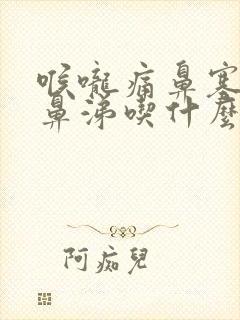 喉嚨痛鼻塞
鼻涕喫什麼
阿痴兒